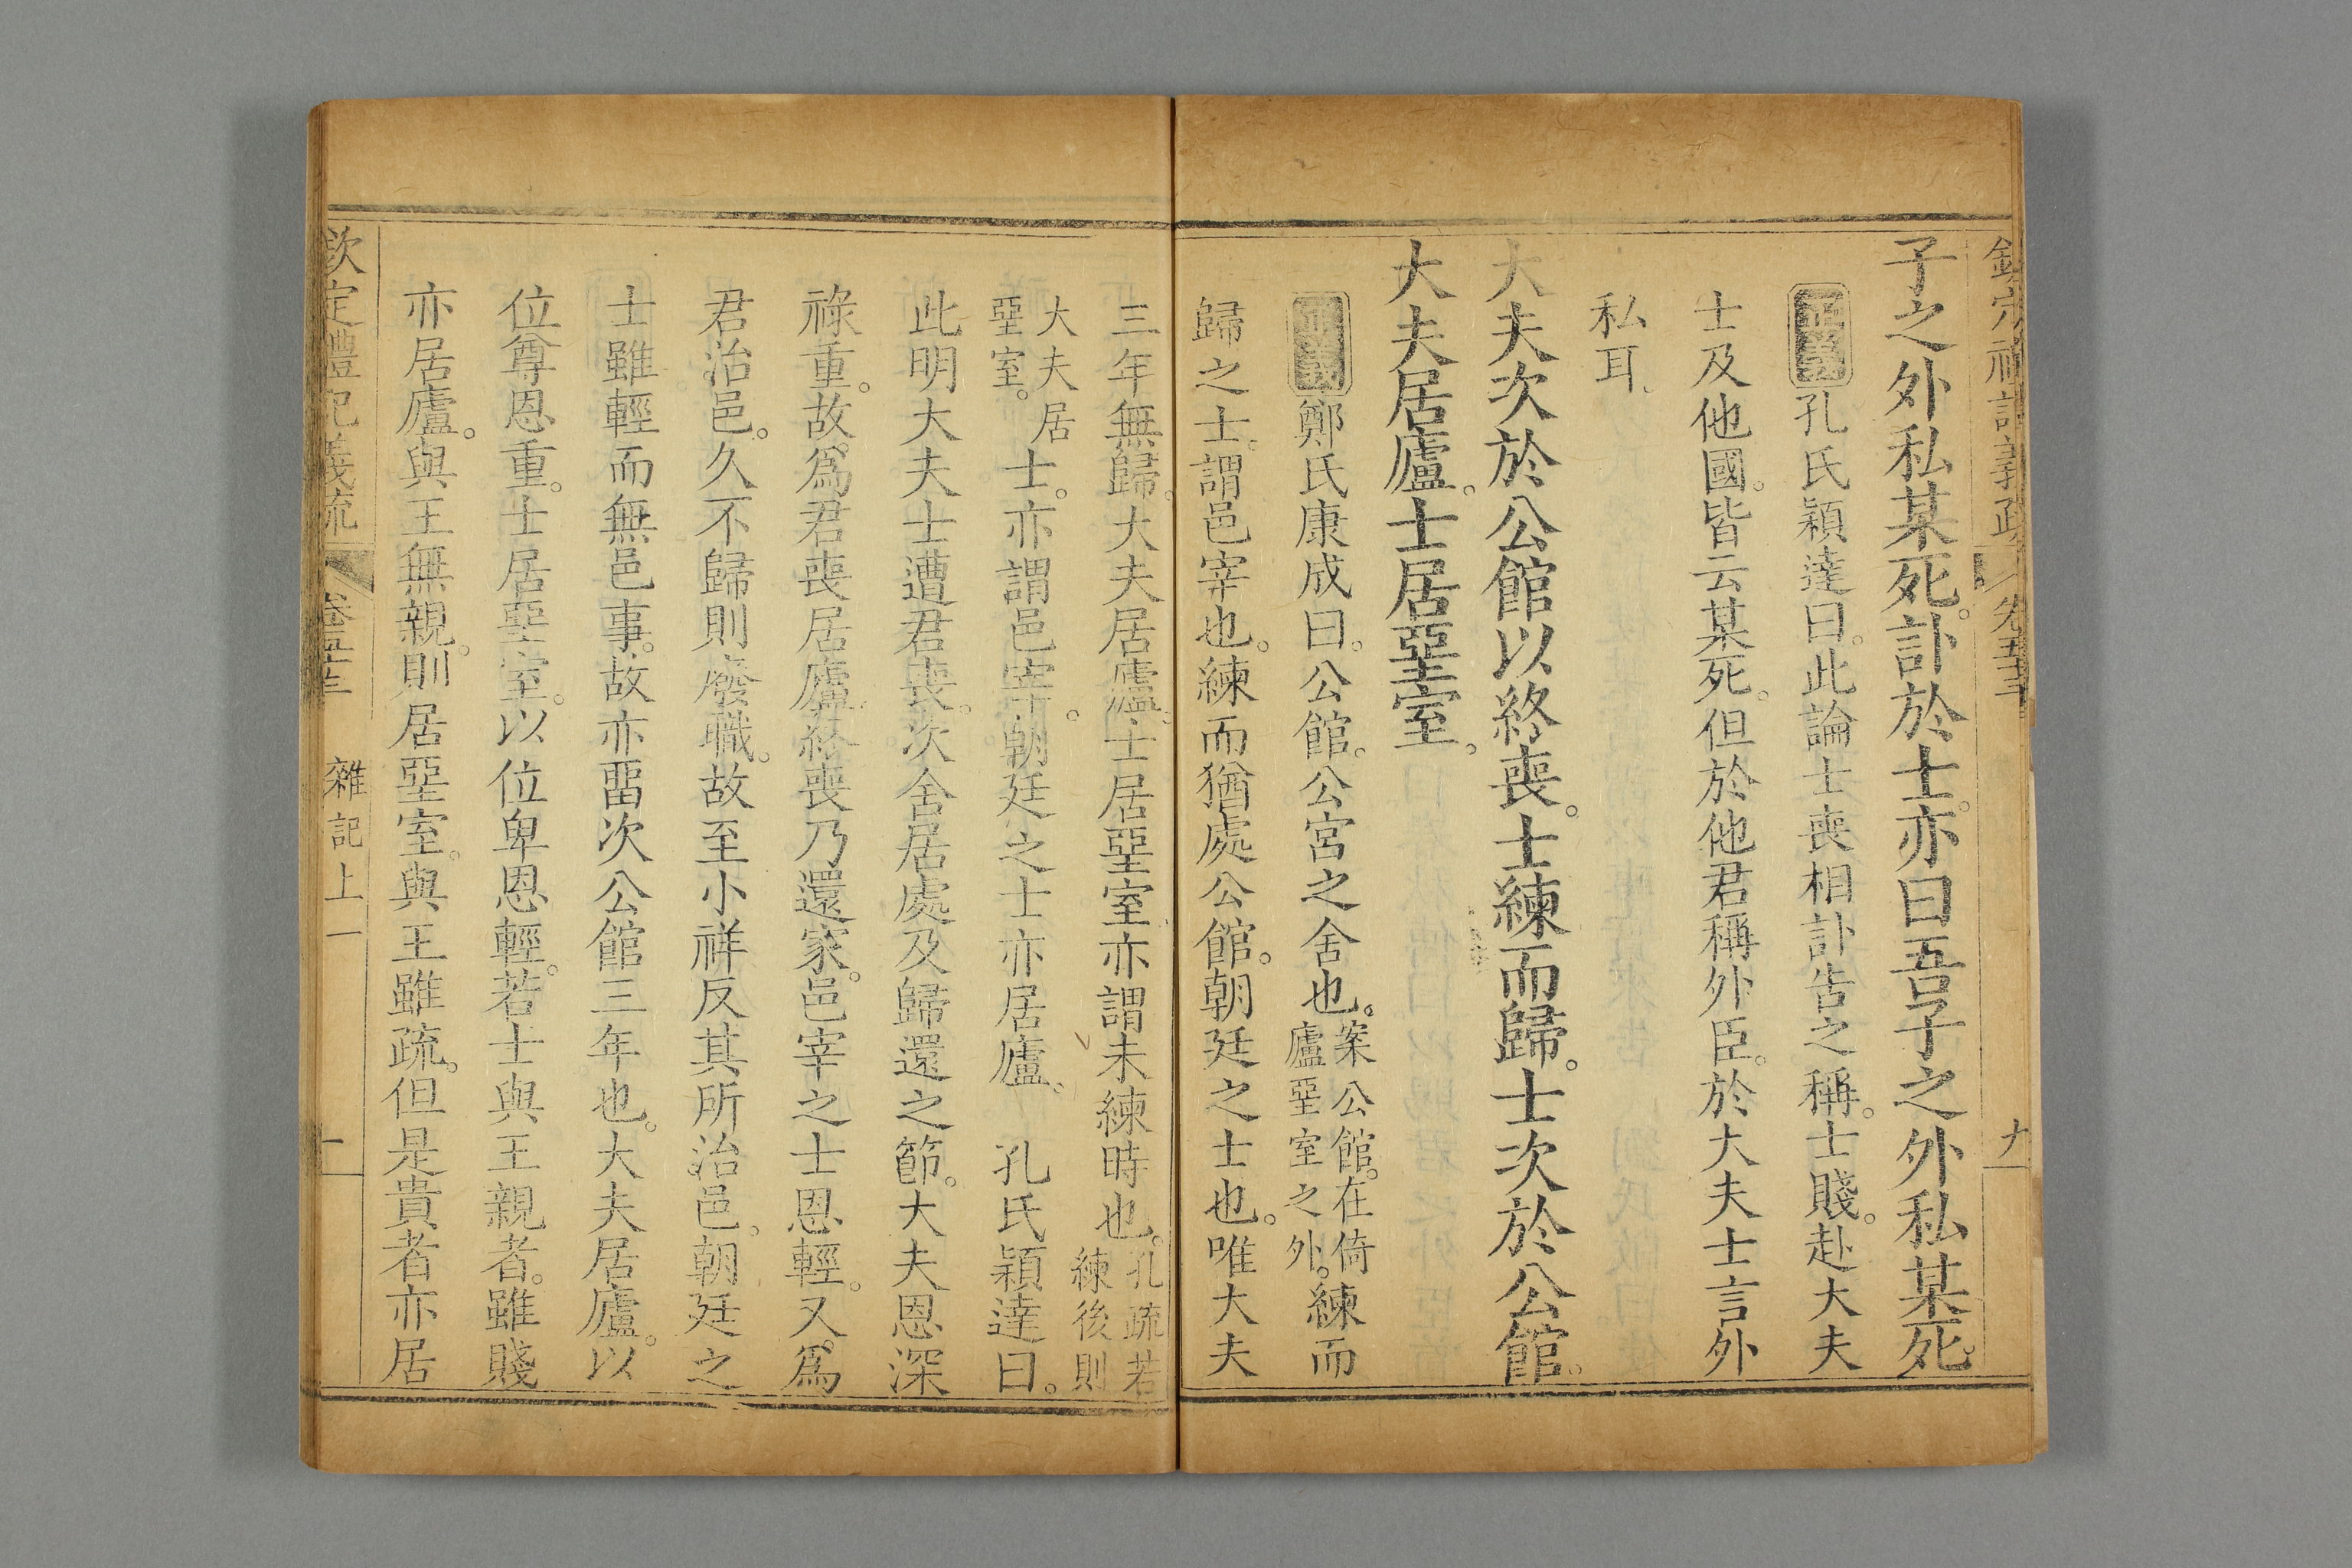 子之外私某死。訃於士。亦曰吾子之外私某死。
正義孔氏穎達曰。此論士喪相訃告之稱。士賤。赴大夫
士及他國。皆云某死。但於他君稱外臣。於大夫士言外
私耳。
大夫次於公館以終喪。士練而歸。士次於公館。
大夫居廬。士居堊室。
正義鄭氏康成曰。公館。公宮之舍也。案公館。在倚廬堊室之外。練而
歸之士。謂邑宰也。練而猶處公館。朝廷之士也。唯大夫
三年無歸。大夫居廬。士居堊室。亦謂未練時也。孔疏若練後則
大夫居堊室。士。亦謂邑宰。朝廷之士亦居廬。 孔氏穎達曰。
此明大夫士遭君喪。次舍居處及歸還之節。大夫恩深
祿重。故爲君喪居廬。終喪乃還家。邑宰之士恩輕。又爲
君治邑。久不歸則廢職。故至小祥反其所治邑。朝廷之
士雖輕而無邑事。故亦畱次公館三年也。大夫居廬。以
位尊恩重。士居堊室。以位卑恩輕。若士與王親者。雖賤
亦居廬。與王無親。則居堊室。與王雖疏。但是貴者亦居
欽定禮記義疏 卷五十三 雜記上一